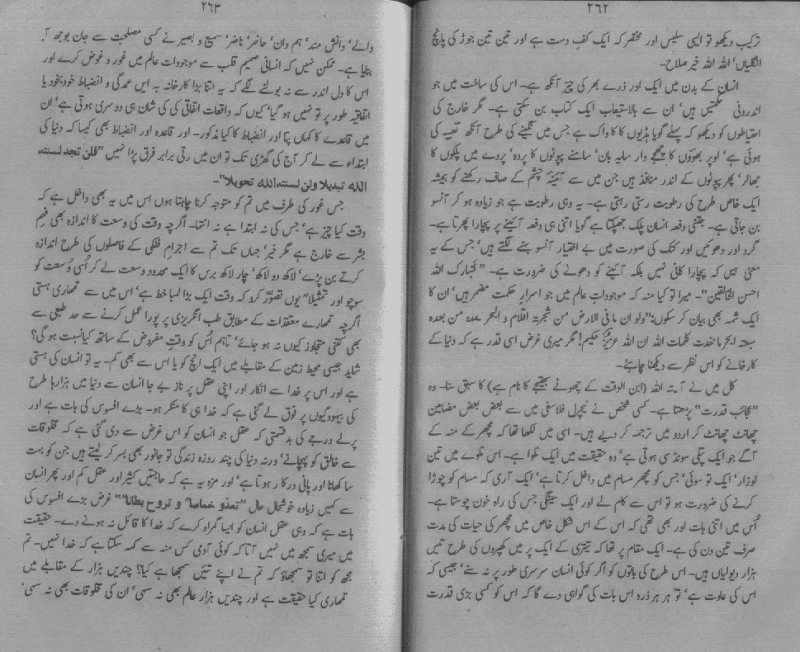 ۲۶۲
ترکیب دیکھو تو ایسی سلیس اور مختصر کہ ایک کفِ دست ہے اور تین تین جوڑ کی پانچ
انگلیاں‘ اللہ اللہ خیر صلاح۔
انسان کے بدن میں ایک اور ذرے بھر کی چیز آنکھ ہے۔ اس کی ساخت میں جو
اندرونی حکمتیں ہیں‘ ان سے بالاستیعاب ایک کتاب بن سکتی ہے۔ مگر خارج کی
احتیاطوں کو دیکھو کہ پہلے گویا ہڈیوں کا کاواک ہے جس میں نگینے کی طرح آنکھ تعبیہ کی
ہوئی ہے‘ اوپر بھوؤں کا چھجے دار سایہ بان‘ سامنے پپوٹوں کا پردہ‘ پردے میں پلکوں کا
جھالر‘ پھر پپوٹوں کے اندر منافذ ہیں جن میں سے آئینۂ چشم کے صاف رکھنے کو ہمیشہ
ایک خاص طرح کی رطوبت رستی رہتی ہے۔ یہ وہی رطوبت ہے جو زیادہ ہو کر آنسو
بن جاتی ہے۔ جتنی دفعہ انسان پلک جھپکتا ہے گویا اتنی ہی دفعہ آئینے پر پچارا پھرتا ہے۔
گرد اور دھوئیں اور کنک کی صورت میں بے اختیار آنسو بہنے لگتے ہیں‘ جس کے یہ
معنی ہیں کہ پچارا کافی نہیں بلکہ آئینے کو دھونے کی ضرورت ہے۔ ”فتبارک اللہ
احسن الخالقین“۔ میرا تو کیا منہ کہ موجوداتِ عالم میں جو اسرارِ حکمت مضمر ہیں‘ ان کا
ایک شمہ بھی بیان کر سکوں: ”ولو ان مافی الارض من شجرۃ اقلام و البحر یمدہ من بعدہ
سبعۃ ابحر مانفدت کلمات اللہ ان اللہ عزیزٌ حکیم! مگر میری غرض اسی قدر ہے کہ دنیا کے
کارخانے کو اس نظر سے دیکھنا چاہئے۔
کل میں نے آیۃ اللہ (ابن الوقت کے چھوٹے بھتیجے کا نام ہے) کا سبق سنا۔ وہ
”عجائب قدرت“ پڑھتا ہے۔ کسی شخص نے نیچرل فلاسفی میں سے بعض بعض مضامین
چھانٹ چھانٹ کر اردو میں ترجمہ کر دیے ہیں۔ اسی میں لکھا تھا کہ مچھر کے منہ کے
آگے جو ایک پتلی سونڈ سی ہوتی ہے‘ وہ حقیقت میں ایک نلوا ہے۔ اس نلوے میں تین
اوزار‘ ایک تو سوئی‘ جس کو مچھر مسام میں داخل کرتا ہے‘ ایک آری کہ مسام کو چوڑا
کرنے کی ضرورت ہو تو اس سے کام لے اور ایک سینگی جس کی راہ خون چوستا ہے۔
اُس میں اتنی بات اور بھی تھی کہ اس کے اس شکل خاص میں مچھر کی حیات کی مدت
صرف تین دن کی ہے۔ ایک مقام پر تھا کہ تیتری کے ایک پر میں کھپروں کی طرح تیس
ہزار دیولیاں ہیں۔ اس طرح کی باتوں کو اگر کوئی انسان سرسری طور پر نہ سنے‘ جیسی کہ
اس کی عادت ہے‘ تو ہر ہر ذرہ اس بات کی گواہی دے گا کہ اس کو کسی بڑی قدرت
۲۶۳
والے‘ دانش مند‘ ہمہ دان‘ حاضر‘ ناضر‘ سمیع و بصیر نے کسی مصلحت سے جان بوجھ کر
بنایا ہے۔ ممکن نہیں کہ انسانی صمیم قلب سے موجودات عالم میں غور و غوض کرے اور
اس کا دل اندر سے نہ بولنے لگے کہ یہ اتنا بڑا کارخانہ بہ ایں عمدگی و انضباط خودبخود یا
اتفاقیہ طور پر تو نہیں ہو گیا‘ کیوں کہ واقعات اتفاقی کی کی شان ہی دوسری ہوتی ہے‘ ان
میں قاعدے کا کہاں پتا اور انضباط کا کیا مذکور۔ اور قاعدہ اور انضباط بھی کیسا کہ دنیا کی
ابتداء سے لے کر آج کی گھڑی تک تو ان میں رتی برابر فرق پڑا نہیں ”فلن تجد لسنته
اللہ تبدیلا ولن لسنته اللہ تحویلا“۔
جس غور کی طرف میں تم کو متوجہ کرنا چاہتا ہوں اس میں یہ بھی داخل ہے کہ
وقت کیا چیز ہے‘ جس کی نہ ابتدا ہے نہ انتہا۔ اگرچہ وقت کی وسعت کا اندازہ بھی فہمِ
بشر سے خارج ہے مگر خیر‘ جہاں تک تم سے اجرامِ فلکی کے فاصلوں کی طرح اندازہ
کرتے بن پڑے‘ لاکھ دو لاکھ‘ چار لاکھ برس کا ایک محدود وسعت لے کر اُسی وُسعت کو
سوچو اور تمثیلا″ یوں تصوّر کرو کہ وقت ایک بڑا لمبا خط ہے‘ اس میں سے تمھاری ہستی
اگرچہ تمھارے معتقدات کے مطابق طب انگریزی پر پورا عمل کرنے سے حد طبعی سے
بھی کتنی متجاوز کیوں نہ ہو جائے‘ تاہم اُس کو وقتِ مفروض کے ساتھ کیا نسبت ہو گی؟
شاید جیسی محیط زمین کے مقابلے میں ایک انچ کو یا اس سے بھی کم۔ یہ تو انسان کی ہستی
ہے اور اس پر خدا سے انکار اور اپنی عقل پر نازِ بے جا! انسان سے دنیا میں ہزارہا طرح
کی بیہودگیوں پر فوق لے گئی ہے کہ خدا ہی کا منکر ہو۔ بڑے افسوس کی بات ہے اور
پرلے درجے کی بدقسمتی کہ عقل جو انسان کو اس غرض سے دی گئی ہے کہ مخلوقات
سے خالق کو پہچانے‘ ورنہ دنیا کی چند روزہ زندگی تو جانور بھی بسر کر لیتے ہیں جن کو بہت
سا کھانا اور پانی درکار ہوتا ہے‘ اور مزہ یہ ہے کہ حاجتیں کثیر اور عقل کم اور پھر انسان
سے کہیں زیادہ خوشحال حال ”تغدو خماصا″ و تروح بطانا″“ غرض بڑے افسوس کی
بات ہے کہ وہی عقل انسان کو ایسا گمراہ کرے کہ خدا کا قائل نہ ہونے دے۔ حقیقت
میں میری سمجھ میں نہیں آتا کہ کوئی آدمی کس منہ سے کہہ سکتا ہے کہ خدا نہیں۔ تم
مجھ کو اتنا تو سمجھاؤ کہ تم نے اپنے تئیں سمجھا ہے کیا؟ چندیں ہزار کے مقابلے میں
تمھاری کیا حقیقت ہے اور چندیں ہزار عالم بھی نہ سہی‘ ان کی مخلوقات بھی نہ سہی‘